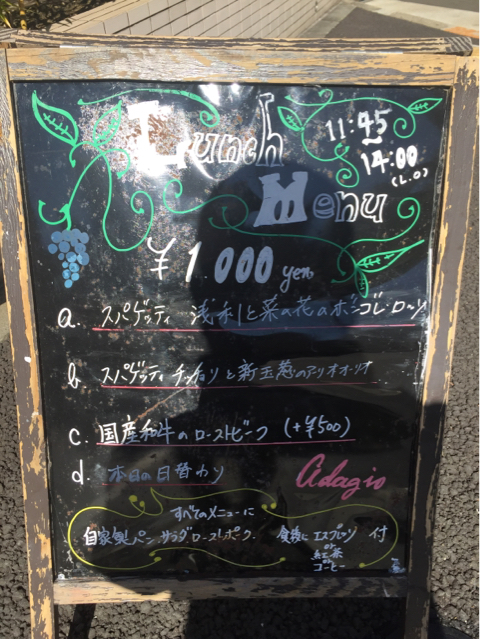 Lunch
Menu
11:45
~
14:00
(L.O)
¥1.000 yen
a. スパゲッティ 浅利と菜の花のボンゴレ・ローソ
b. スパゲッティ チッチョリと新玉葱のアリオ・オーリオ
c. 国産和牛のローストビーフ (+¥500)
d. 本日の日替わり
Adagio
すべてのメニューに
自家製パン サラダ ローストポーク
食後に エスプレッソ 付
紅茶
コーヒー